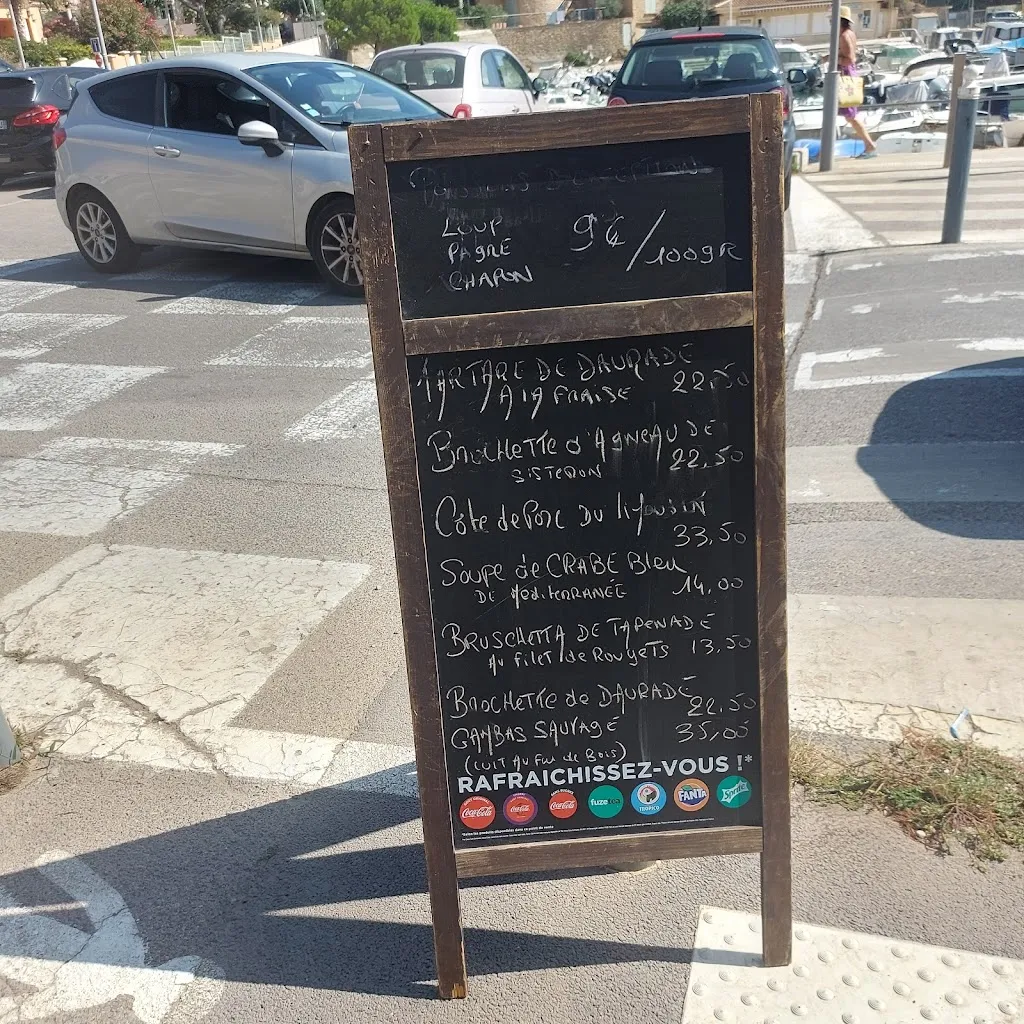 Poissons D'exception
LOUP
PAGRE
CHAPON
9€/100gR
TARTARE DE DAURADE
A lA FRAISE 22,50
BROCHETTE d'AGNEAU DE
SISTERON 22,50
Côte de Porc DU liMOUSIN
33,50
Soupe de CRABE Bleu
DE MéditERRANÉE 14,00
BRUSCHETTA DE TAPENADE
AU Filet de RouGETS 13,50
BROCHETTE de DAURADE
22,50
GAMBAS SAUVAGE 35,00
(CUIT AU Feu de Bois)
RAFRAICHISSEZ-VOUS !*
Coca-Cola Coca-Cola Coca-Cola fuze tea TROPICO FANTA Sprite